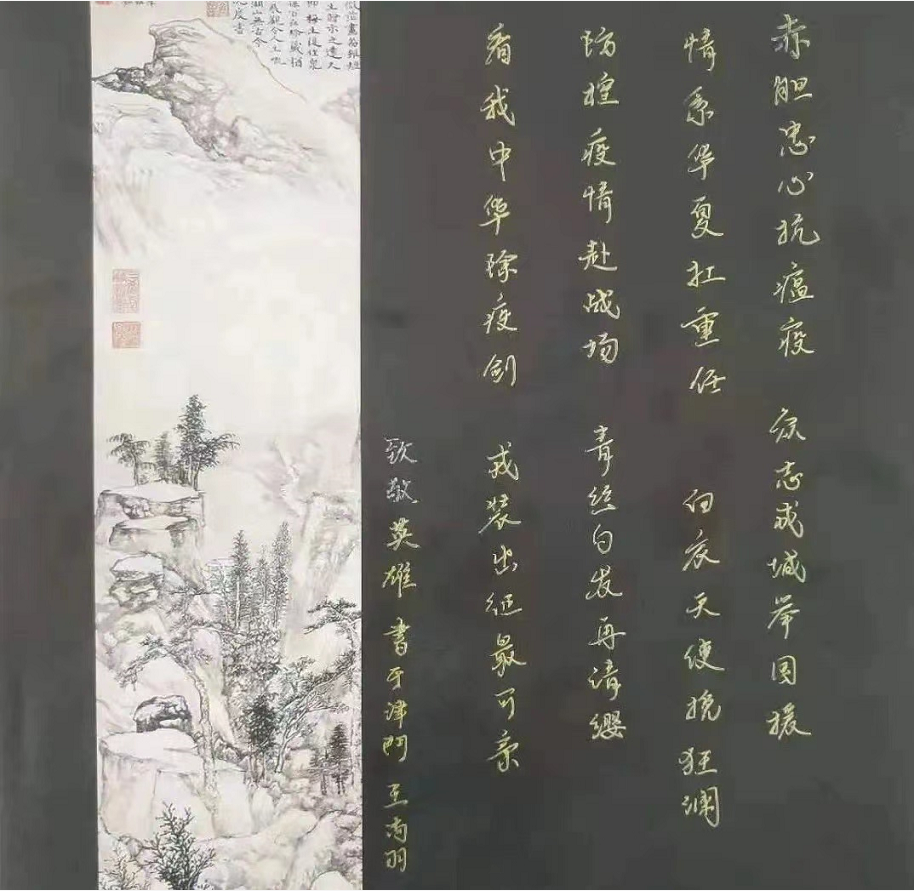 赤胆忠心抗瘟疫 众志成城举国援
情系华夏扛重任 白衣天使挽狂澜
防控疫情赴战场 青丝白发再请缨
看我中华除疫剑 戎装出征最可亲
致敬英雄 书于津门 王尚羽